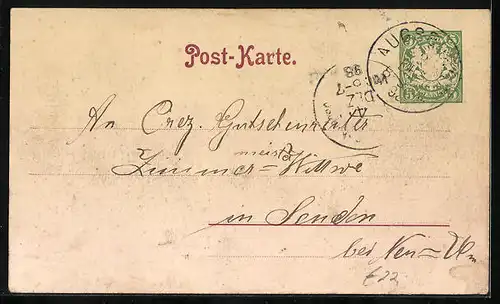 Post-Karte.
AUGSB
98
DEZ
An Crez. Gutschenreiter
meister
Zimmer=Wittwe
in Senden
bei Neu=Ulm